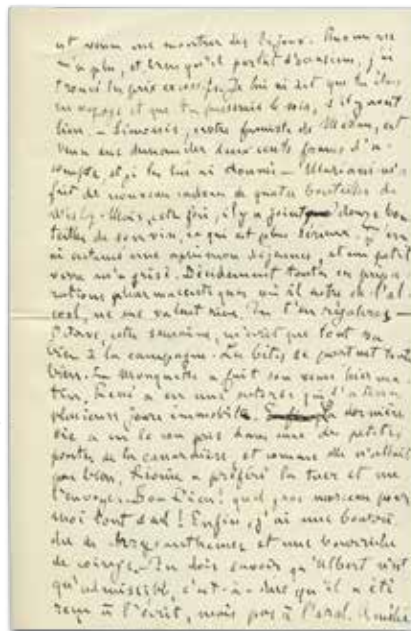 est venu me montrer des bijoux. Aucun ne
m'a plu, et bien qu'il parlât d'occasion, j'ai
trouvé les prix excessifs. Je lui ai dit que tu étais
en voyage et que tu passerais le voir, s'il y avait
lieu. – Simonin, notre fumiste de Médan, est
venu me demander deux cents francs d'a-
compte et je les lui ai donnés – Mariani m'a
fait de nouveau cadeau de quatre bouteilles de
Mais, cette fois, il y a joint douze bou-
teilles de son vin, ce qui est plus sérieux. J'en
ai entamé une après mon déjeuner, et un petit
verre m'a grisé. Décidément toutes ces prépa-
rations pharmaceutiques où il entre de l'al-
cool, ne me valent rien. Tu t'en régaleras –
Octave, cette semaine, m'écrit que tout va
bien à la campagne. Les bêtes se portent très
bien. La Mouquette a fait son venin hier ma-
tin,
plusieurs jours immobile. la dernière
oie a eu le cou pris dans une des petites
portes de la canardière, et comme elle n'allait
pas bien, Léonie a préféré la tuer et me
l'envoyer. Bon Dieu! quel gros morceau pour
moi tout seul! Enfin, j'ai une bourri-
che de chrysanthèmes et une bourriche
de coings. – Tu dois savoir qu'Albert n'est
qu'admissible, c'est-à-dire qu'il a été
reçu à l'écrit, mais pas à l'oral. Amélie